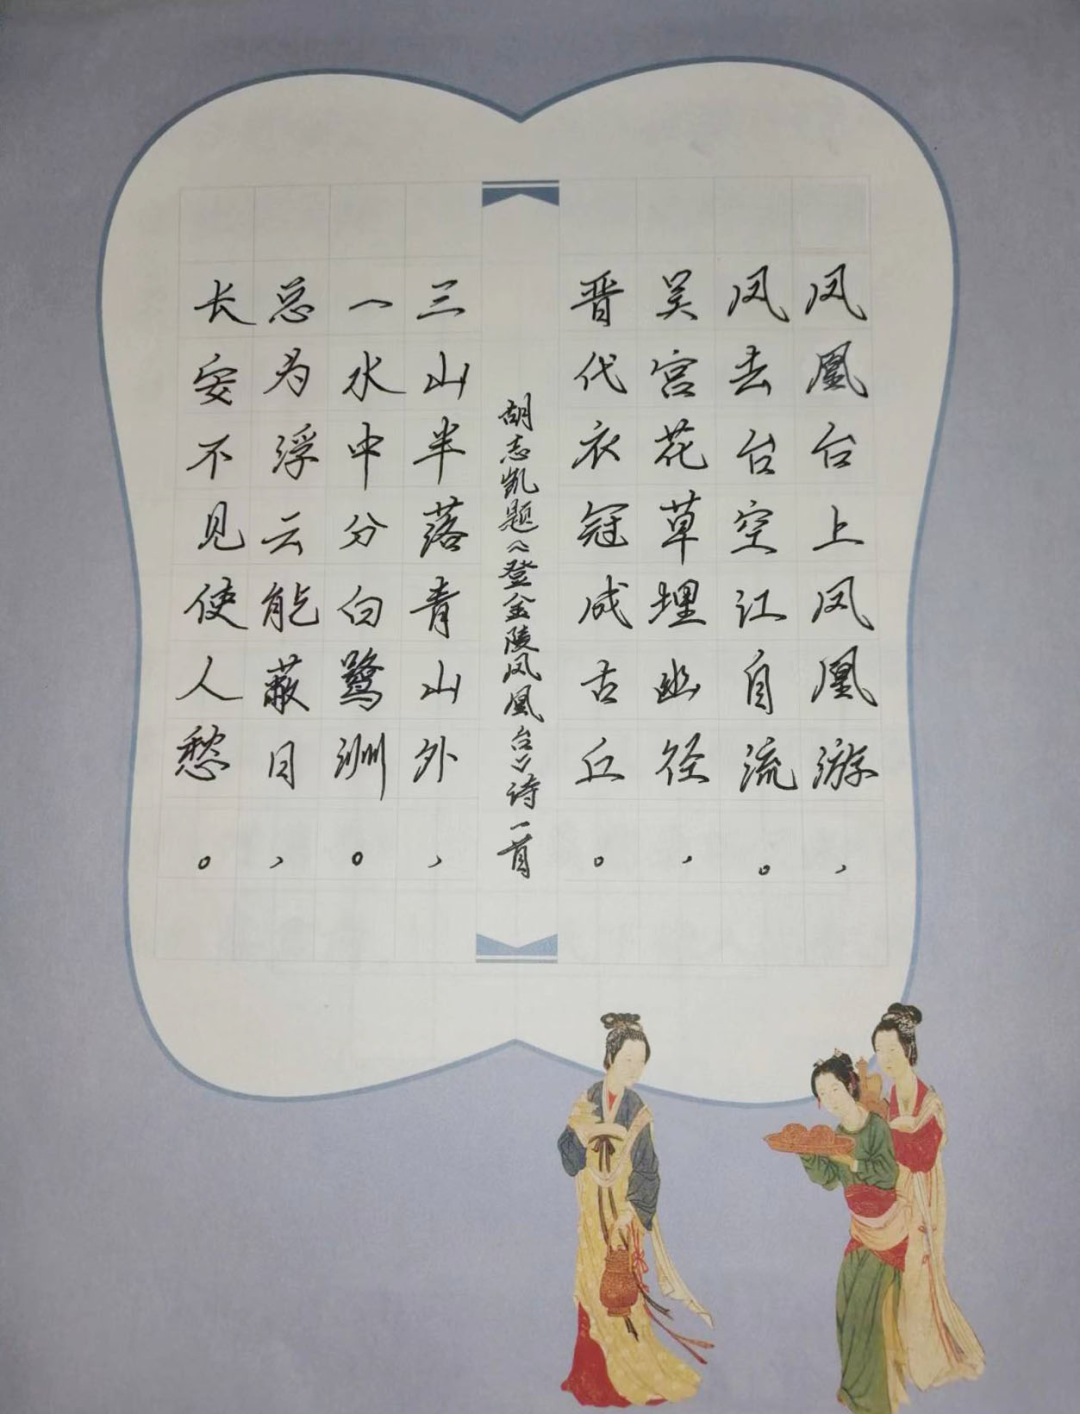 凤凰台上凤凰游，
凤去台空江自流。
吴宫花草埋幽径，
晋代衣冠成古丘。
胡志凯题《登金陵凤凰台》诗一首
三山半落青山外，
一水中分白鹭洲。
总为浮云能蔽日，
长安不见使人愁。